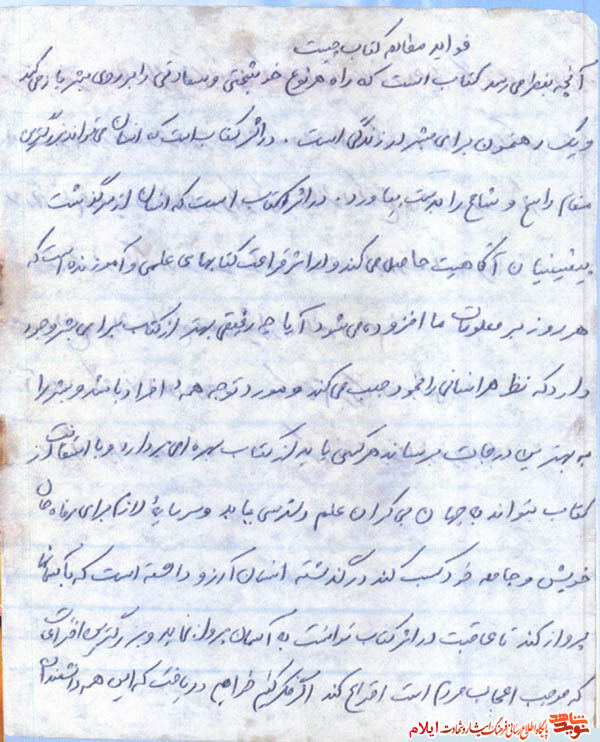 فواید مطالعه کتاب چیست
آنچه بنظر می رسد کتاب است که راه هر نوع خوشبختی و سعادتی را بر روی بشر باز می کند
و یک رهنمون برای بشر در زندگی است . در اثر کتاب است که انسان می تواند بزرگترین
مقام راسخ و شامخ را بدست بیاورد . در اثر کتاب است که انسان از سرگذشت
پیشینیان آگاهیت حاصل می کند و در اثر قرائت کتابهای علمی و آموزنده است که
هر روز بر معلومات ما افزوده می شود آیا چه رفیقی بهتر از کتاب برای بشر وجود
دارد که نظر هر انسانی را بخود جلب می کند و مورد توجه همهٔ افراد باشد و بشر را
به بهترین درجات برساند هر کسی باید از کتاب بهره ای بردارد و با استفاده از
کتاب بتواند به جهان بی کران علم دسترسی یابد و سرمایهٔ لازم برای رفاه حال
خویش و جامعه خود کسب کند در گذشته انسان آرزو داشته است که با آسمانها
پرواز کند تا عاقبت در اثر کتاب توانست به آسمان پرواز نماید و بزرگترین اختراعات
که موجب اعجاب مردم است اختراع کند اگر فکر کنیم خواهیم دریافت که این همه دانشمندان
نوید شاهد پایگاه اطلاع رسانی فرهنگ ایثار و شهادت ایلام